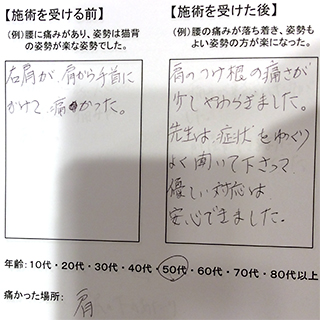 【施術を受ける前】
(例)腰に痛みがあり、姿勢は猫背
の姿勢が楽な姿勢でした。
右肩が、肩から手首に
かけて、痛かった。
【施術を受けた後】
(例)腰の痛みが落ち着き、姿勢も
よい姿勢の方が楽になった。
肩のつけ根の痛さが
少しやわらぎました。
先生は、症状をゆっくり
よく聞いて下さって
優しい対応は
安心できました。
年齢:10代・20代・30代・40代・50代・60代・70代・80代以上
痛かった場所: 肩